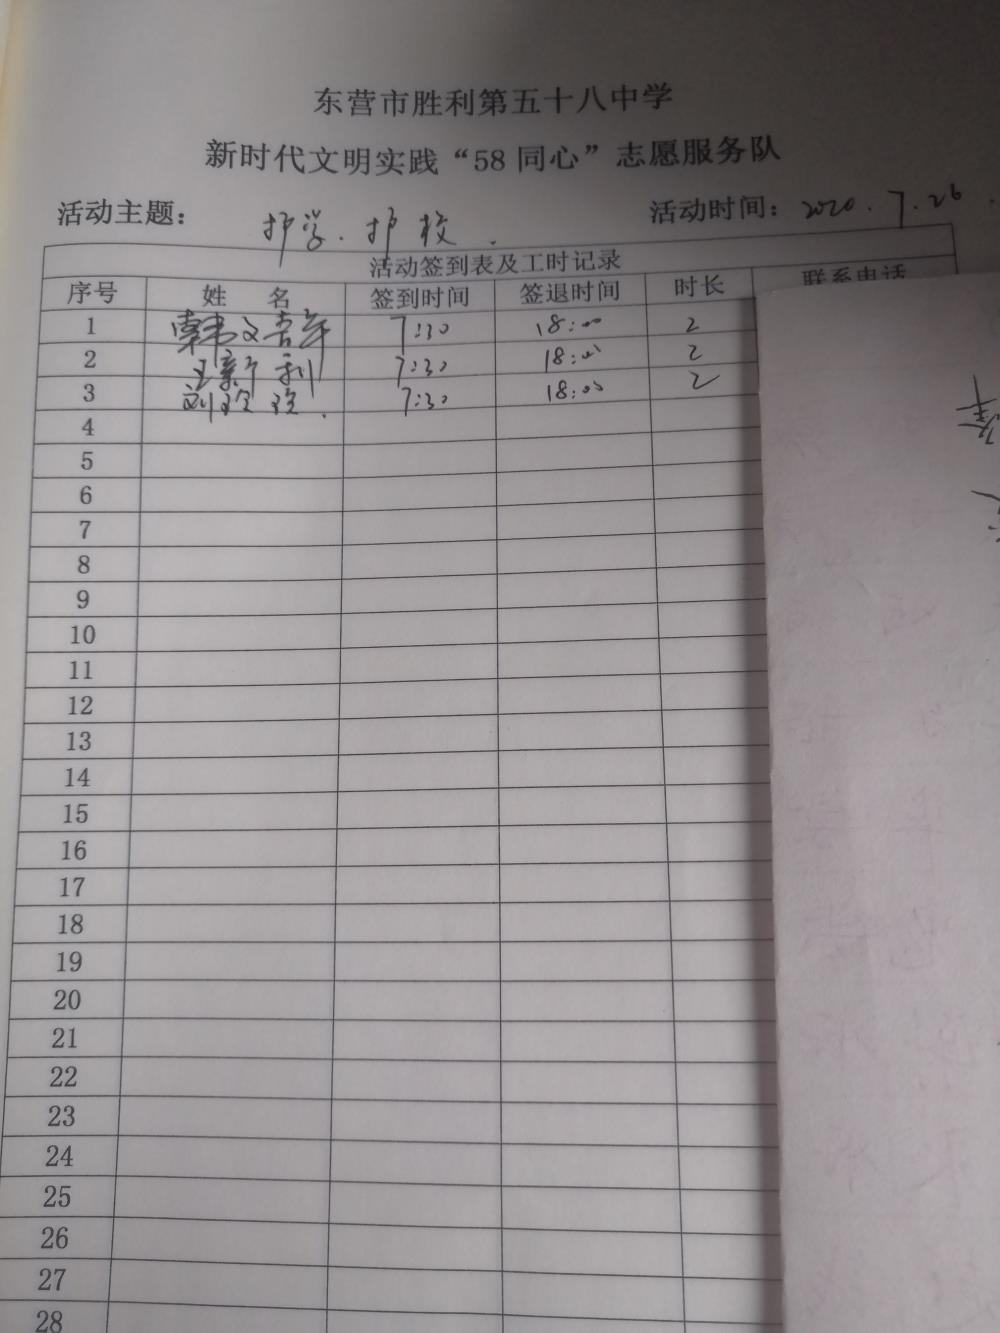 东营市胜利第五十八中学
新时代文明实践“58同心”志愿服务队
活动主题： 护学.护校. 活动时间：2020.7.26.
活动签到表及工时记录
序号 姓 名 签到时间 签退时间 时长 联系电话
1 韩文 7:30 18:00 2
2 王新利 7:30 18:00 2
3 刘玲玲. 7:30 18:00 2
4
5
6
7
8
9
10
11
12
13
14
15
16
17
18
19
20
21
22
23
24
25
26
27
28